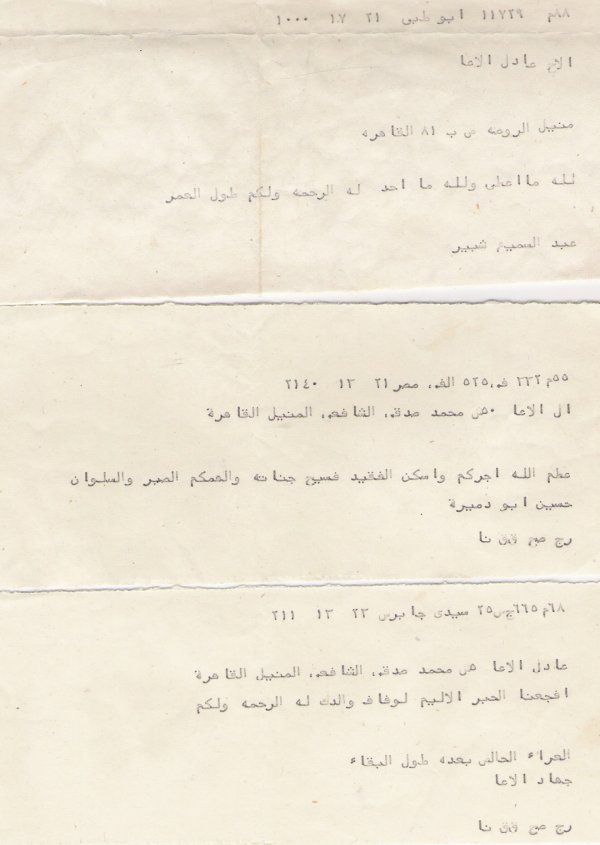 ٨٨م ١١٧٢٩ ابو ظبى ٢١ ١٧ ١٠٠٠
الاخ عادل الاغا
منيل الروضه ص ب ٨١ القاهره
لله مااعطى ولله ما اخذ له الرحمه ولكم طول العمر
عبد السميع شبير
٥٥م ٢٣٢ ف ٥٢٥ الف مصر ٢١ ١٣ ٢١٤٠
الى الاغا ٥٠ش محمد صدقى الشافعى المنيل القاهرة
عظم الله اجركم واسكن الفقيد فسيح جناته والهمكم الصبر والسلوان
حسين ابو دميرة
رج صح ققنا
٦٨م ٦٦٥جس٢٥ سيدى جابرس ٢٣ ١٣ ٢١١
عادل الاغا ش محمد صدقى الشافعى المنيل القاهرة
افجعنا الخبر الاليم لوفاة والدك له الرحمه ولكم
العزاء الخالص بعده طول البقاء
جهاد الاغا
رج صح ققنا